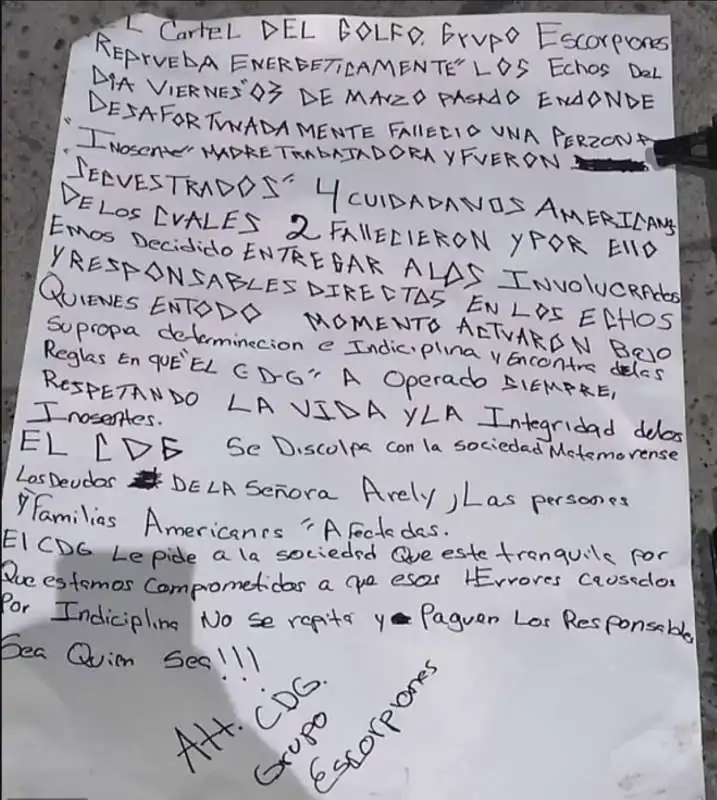 L Cartel DEL GOLFO. Grupo Escorpiones
Reprueba ENERGETICAMENTE" LOS Echos Del
DIA VIERNES" 03 DE MARZO PASADO ENDONDE
DESAFORTUNADAMENTE FALLECIO UNA PERZONA
"INOSENTE" MADRE TRABAJADORA Y FUERON
SECUESTRADOS" 4 CUIDADANOS AMERICANS
DE LOS CUALES 2 FALLECIERON Y POR ELLO
EMOS Decidido ENTREGAR A LOS INVOLUCRAdos
Y RESPONSABLES DIRECTOS EN LOS ECHOS
QUIENES ENTODO MOMENTO ACTUARON BAJO
su propa determineccion e Indiciplina y Encontra delas
Reglas En QUE "EL CDG" A Operado SIEMPRE,
RESPETANDO LA VIDA Y LA Integridad delos
Inosentes.
EL CDG Se Disculpa con la sociedad Matamorense
Los Deudos DE LA Señora Arely, Las personas
Y Familias Americanas "Afectadas.
El CDG Le pide a la sociedad Que este tranquila por
Que estamos comprometidos a que esos Errores Causados
Por Indiciplina No se repita y Paguen Los Responsables
Sea Quien Sea!!!
Att. CDG.
Grupo
Escorpiones